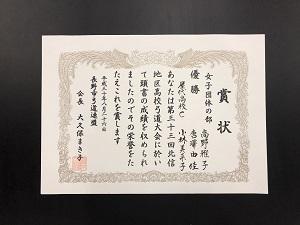 賞状
女子団体の部
優勝
屋代高校C
高野雅子
唐澤由佳
小林美菜子
あなたは第三十三回北信
地区高校弓道大会に於い
て頭書の成績を収められ
ましたのでその栄誉をた
たえこれを賞します
平成三十年八月二十六日
長野市弓道連盟
会長 大久保まき子